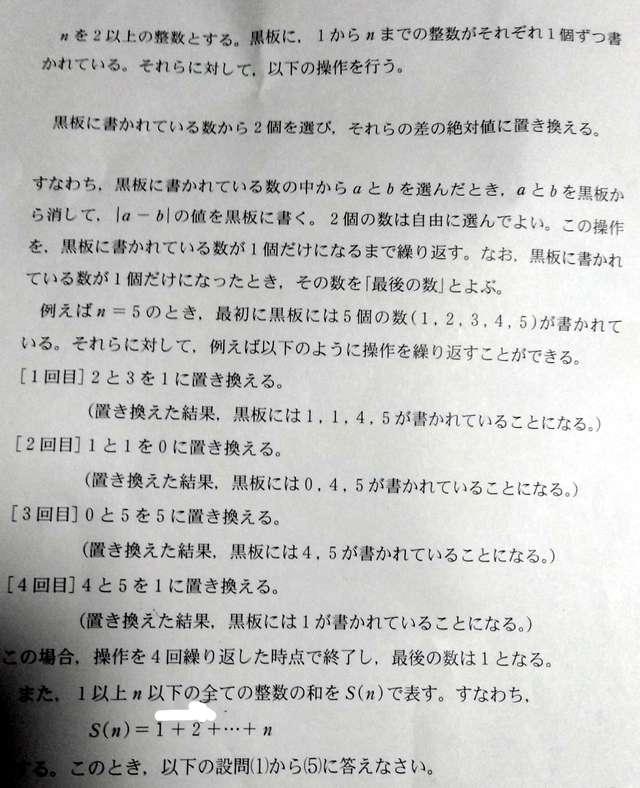 nを2以上の整数とする。黒板に，1からnまでの整数がそれぞれ1個ずつ書
かれている。それらに対して，以下の操作を行う。
黒板に書かれている数から2個を選び，それらの差の絶対値に置き換える。
すなわち，黒板に書かれている数の中からaとbを選んだとき，aとbを黒板か
ら消して，|a－b|の値を黒板に書く。2個の数は自由に選んでよい。この操作
を，黒板に書かれている数が1個だけになるまで繰り返す。なお，黒板に書かれ
ている数が1個だけになったとき，その数を「最後の数」とよぶ。
例えばn＝5のとき，最初に黒板には5個の数(1，2，3，4，5)が書かれて
いる。それらに対して，例えば以下のように操作を繰り返すことができる。
[1回目]2と3を1に置き換える。
(置き換えた結果，黒板には1，1，4，5が書かれていることになる。)
[2回目]1と1を0に置き換える。
(置き換えた結果，黒板には0，4，5が書かれていることになる。)
[3回目]0と5を5に置き換える。
(置き換えた結果，黒板には4，5が書かれていることになる。)
[4回目]4と5を1に置き換える。
(置き換えた結果，黒板には1が書かれていることになる。)
この場合，操作を4回繰り返した時点で終了し，最後の数は1となる。
また，1以上n以下の全ての整数の和をS(n)で表す。すなわち，
S(n)＝1＋2＋…＋n
する。このとき，以下の設問(1)から(5)に答えなさい。